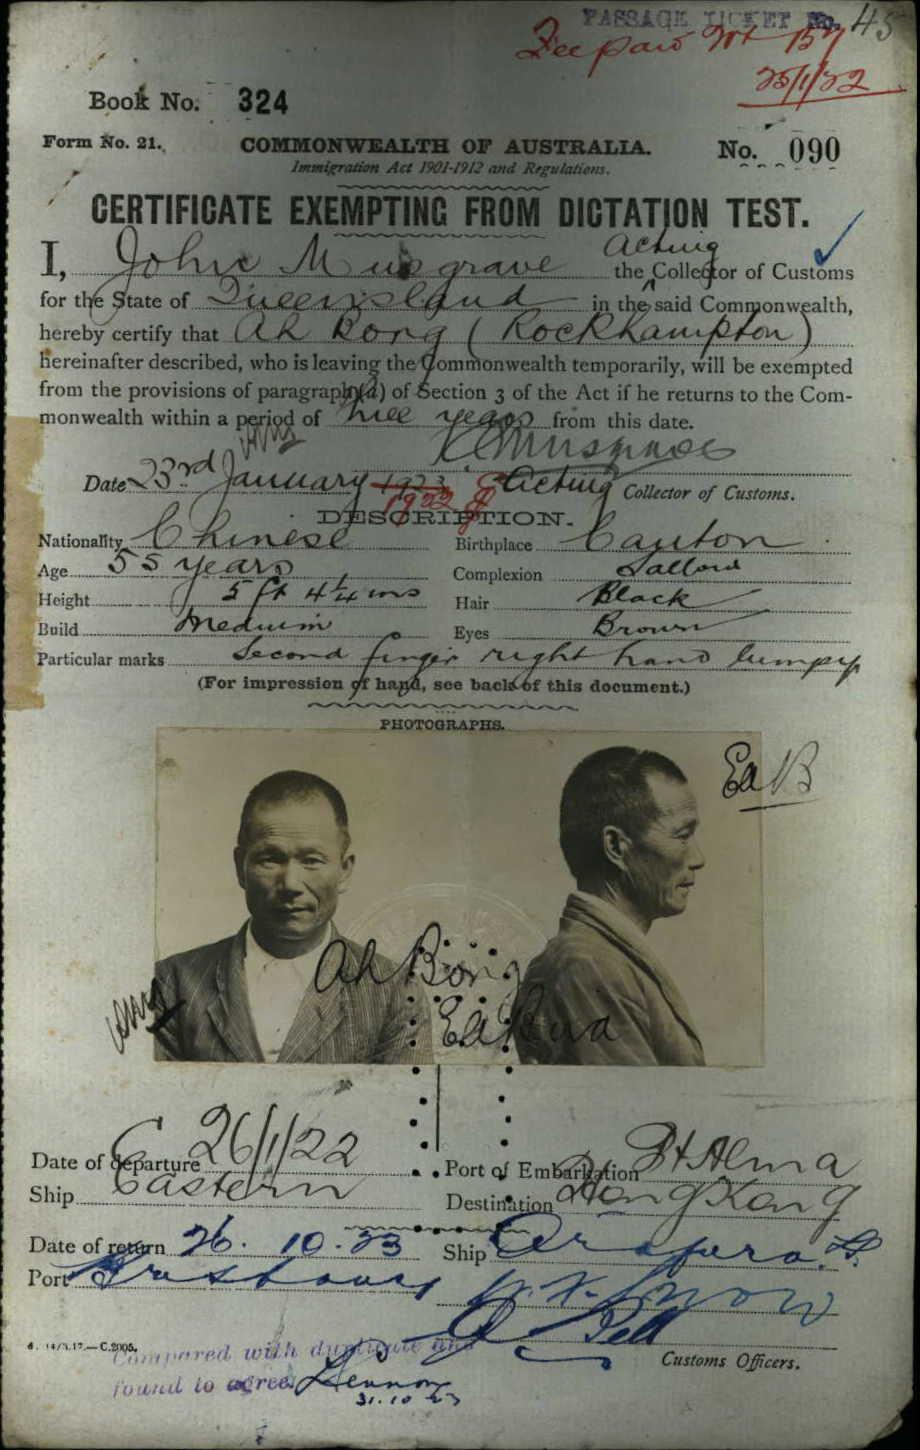 PASSAGE TICKET No. 45
Fee paid
25/1/22
Book No. 324
Form No. 21. COMMONWEALTH OF AUSTRALIA. No. 090
Immigration Act 1901-1912 and Regulations.
CERTIFICATE EXEMPTING FROM DICTATION TEST.
Acting
I, John Musgrave the Collector of Customs
for the State of Queensland in the said Commonwealth,
hereby certify that Ah Bong (Rockhampton)
hereinafter described, who is leaving the Commonwealth temporarily, will be exempted
from the provisions of paragraph (a) of Section 3 of the Act if he returns to the Com-
monwealth within a period of three years from this date.
Musgrave
Date 23rd January 1923 1922 Acting Collector of Customs.
DESCRIPTION.
Nationality Chinese Birthplace Canton
Age 55 years Complexion Sallow
Height 5 ft 4¼ ins Hair Black
Build Medium Eyes Brown
Particular marks Second finger right hand lumpy
(For impression of hand, see back of this document.)
PHOTOGRAPHS.
Ah Bong
Date of departure 26/1/22 Port of Embarkation Pt Alma
Ship Eastern Destination Hong Kong
Date of return 26.10.23 Ship Arafura
Port Brisbane
Customs Officers.
C.2005.
Compared with duplicate and
found to agree. Lennon
31.10.23